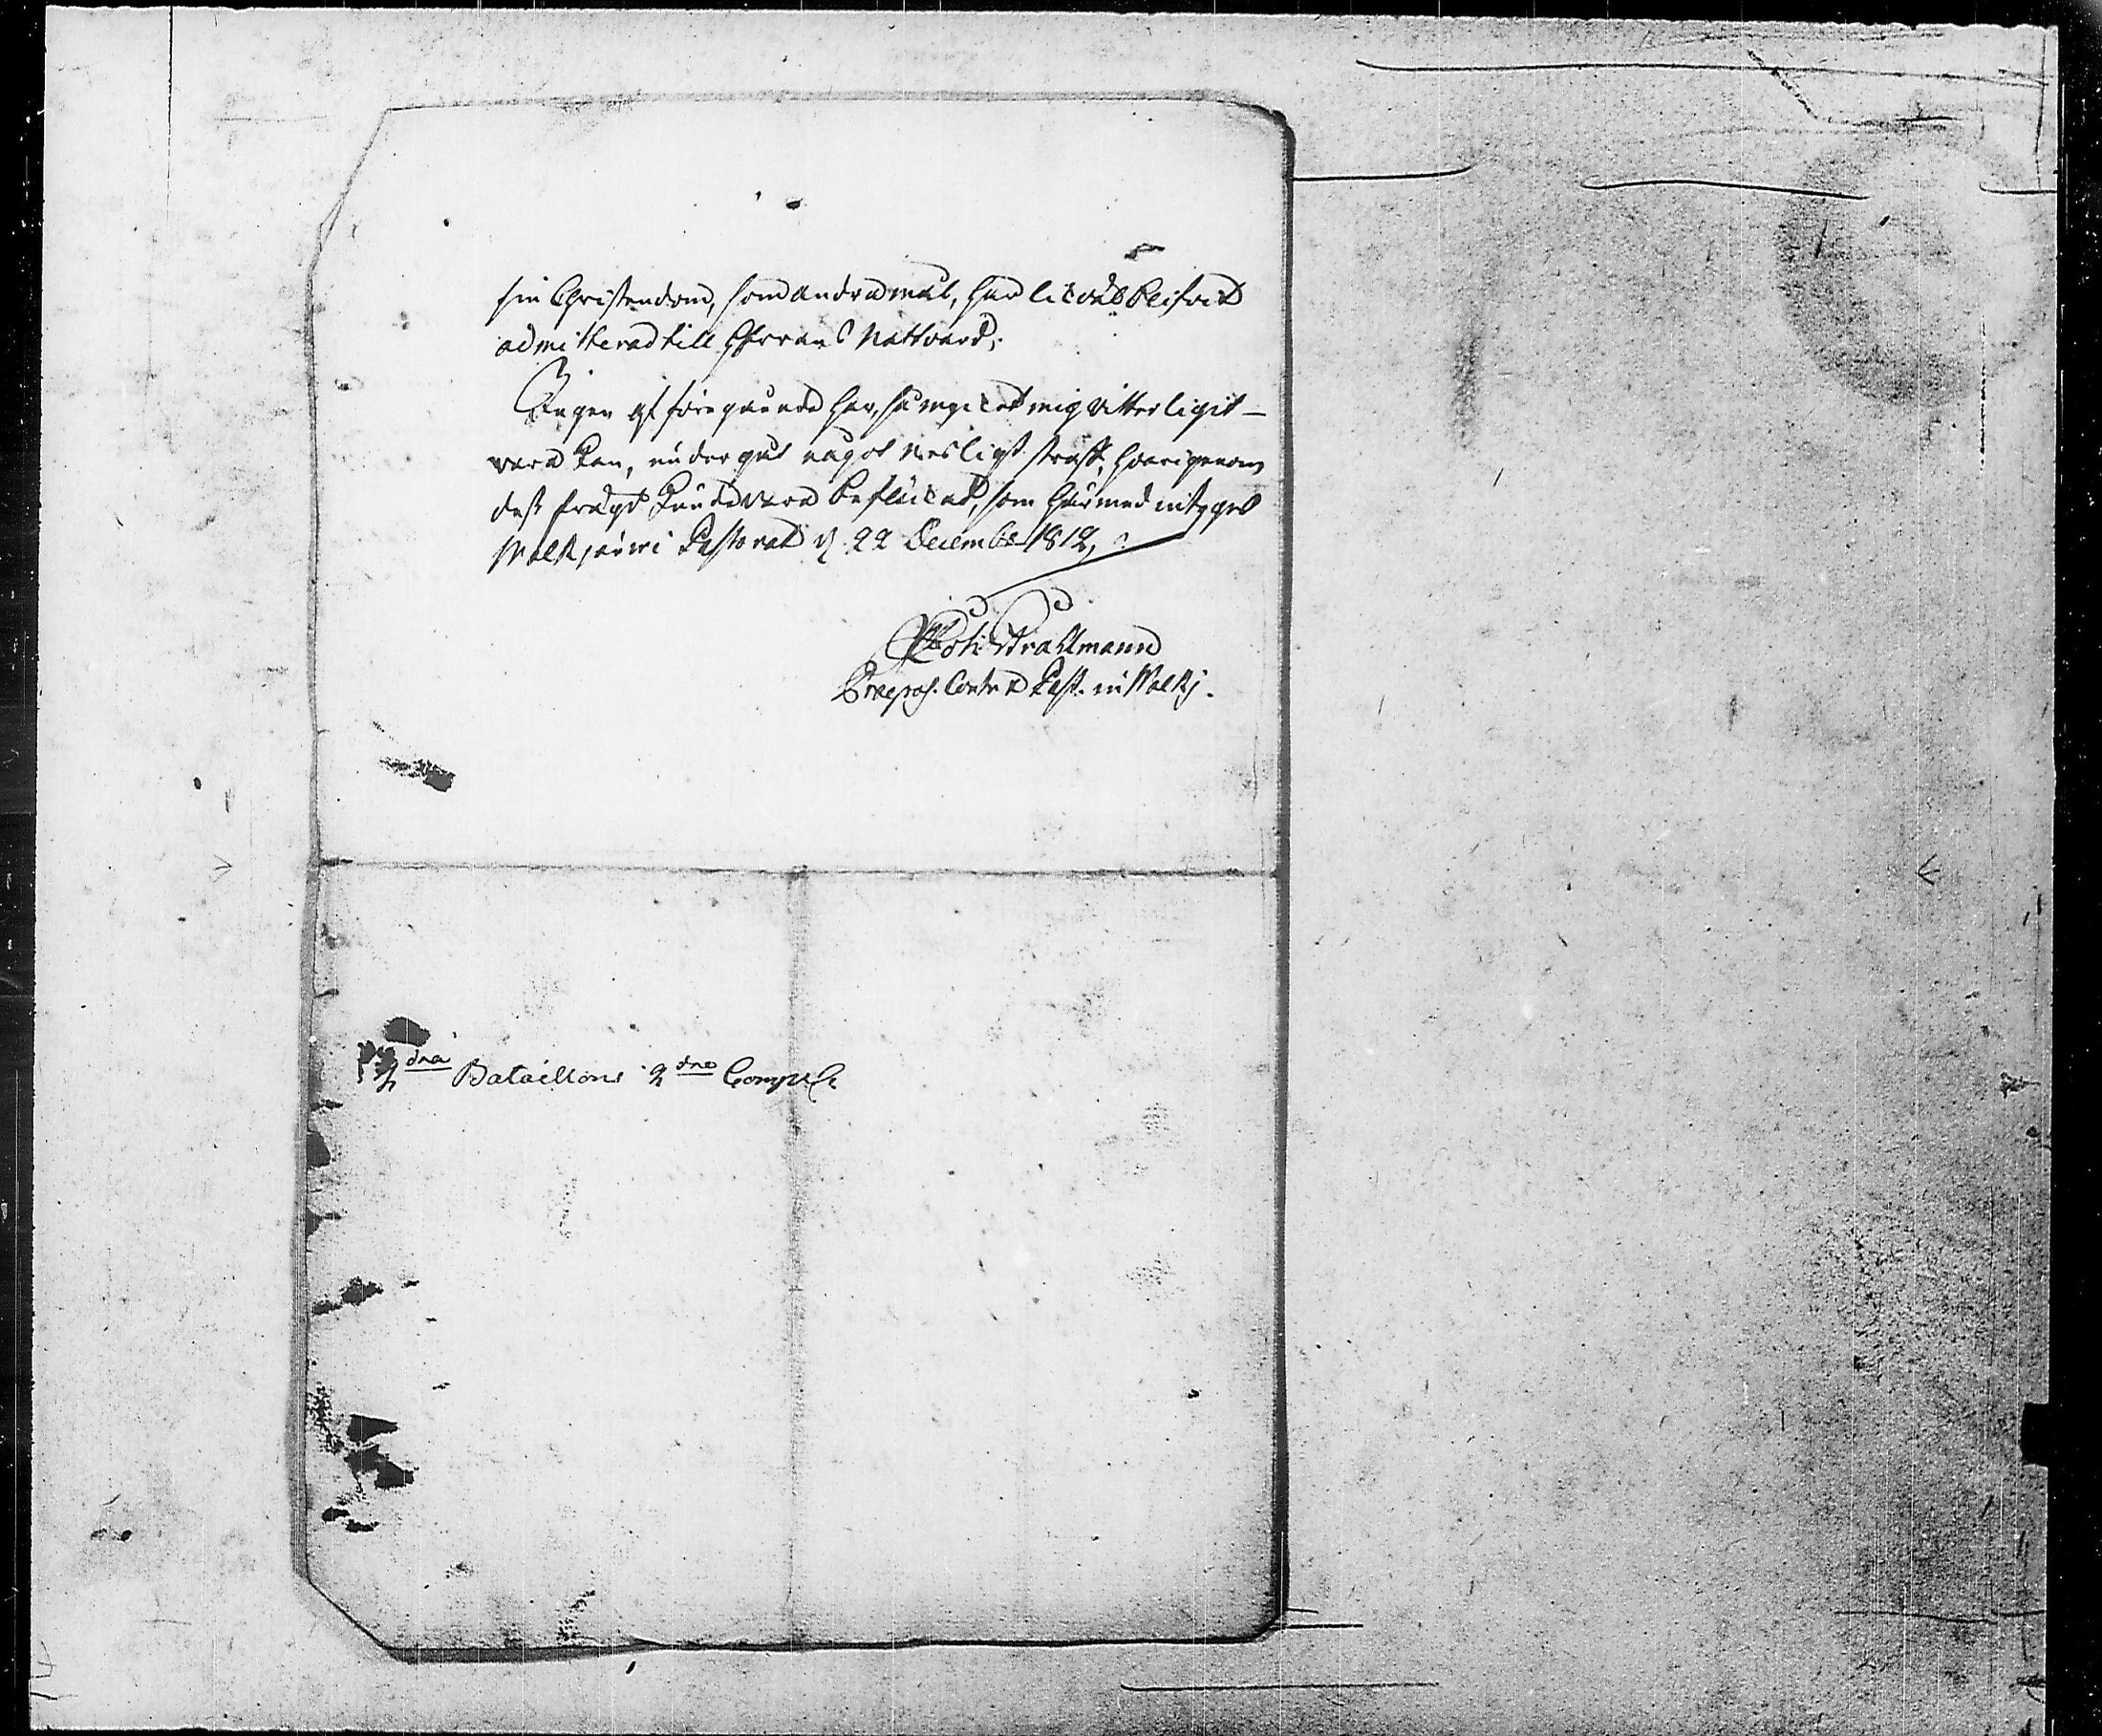 sin Christendom, som andra mål, har likväl blifvit
admitterad till Herrans Nattvard.
Ingen af föregående har, så mycket mig vitterligit
vara kan, undergåt något nesligt straff, hvarigenom
dess frägd kunde vara befläckad, som härmed intygas
Walkjärvi Pastorat d. 22 Decemb. 1812,
Strahlmann
Præpos. Contr. & Past. in Walkj.
2dra Bataillons 2dra Comp.